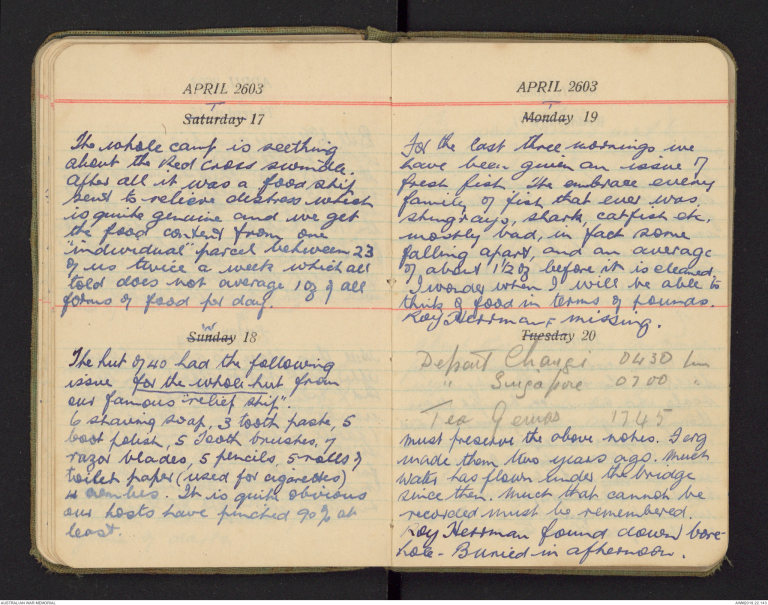 APRIL 2603
T
Saturday 17
The whole camp is seething
about the Red Cross swindle.
After all it was a food ship
sent to relieve distress which
is quite genuine and we get
the food content from one
"individual" parcel between 23
of us twice a week which all
told does not average 1 oz of all
forms of food per day.
W
Sunday 18
The hut of 40 had the following
issue for the whole hut from
our famous "relief ship".
6 shaving soap, 3 tooth paste, 5
boot polish, 5 tooth brushes, 7
razor blades, 5 pencils, 5 rolls of
toilet paper (used for cigarettes)
4 It is quite obvious
our hosts have pinched 90% at
least.
APRIL 2603
T
Monday 19
For the last three mornings we
have been given an issue of
fresh fish. The embrace every
family of fish that ever was.
stingrays, shark, catfish etc.
mostly bad, in fact some
falling apart, and an average
of about 1/2 oz before it is cleaned.
I wonder when I will be able to
think of food in terms of pounds.
Roy Herrman missing.
Tuesday 20
Depart Changi 0430 hrs
" Singapore 0700 "
Tea Gemas 1745
Must preserve the above notes. I org
made them two years ago. Much
water has flown under the bridge
since then. Much that cannot be
recorded must be remembered.
Roy Herrman found down bore-
hole - Buried in afternoon.
AUSTRALIAN WAR MEMORIAL